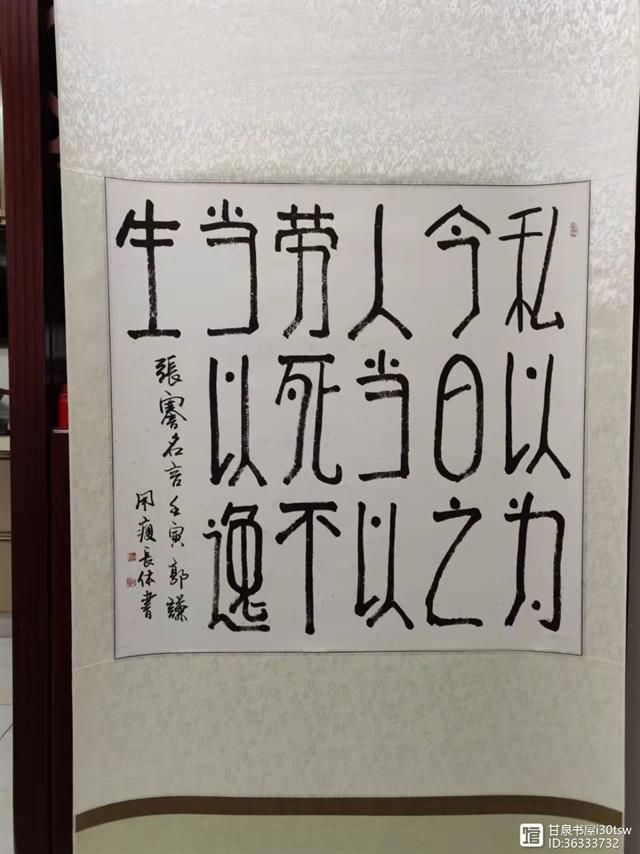 私以为
今日之
人当以
劳死不
当以逸
生
张謇名言壬寅郭谦
用瘦长体书
甘泉书屋i30tsw
ID:36333732